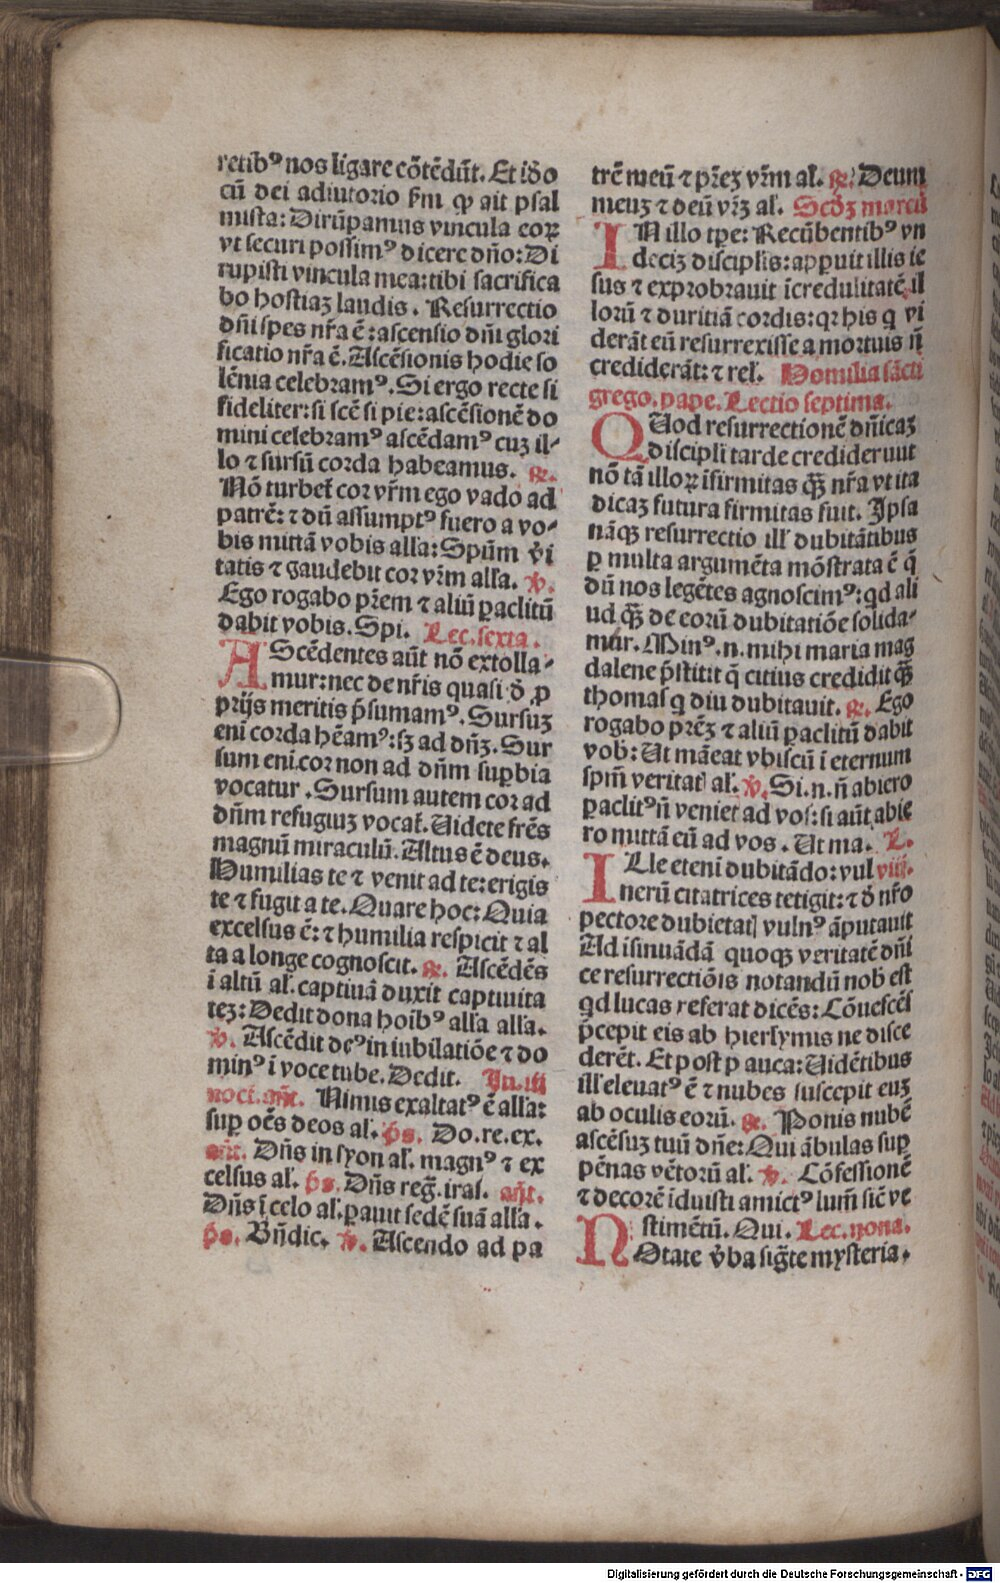 retibꝰ nos ligare cõtẽdũt. Et iđo
cũ dei adiutorio ẜm ꝙ ait psal
mista: Dirũpamus vincula eoꝝ
vt securi possimꝰ dicere dño: Di
rupisti vincula mea: tibi sacrifica
bo hostiaꝫ laudis. Resurrectio
dñi spes nr̃a ẽ: ascensio dñi glori
ficatio nr̃a ẽ. Ascẽsionis hodie so
lẽnia celebramꝰ. Si ergo recte si
fideliter: si scẽ si pie: ascẽsionẽ do
mini celebramꝰ ascẽdamꝰ cuꝫ il⸗
lo ⁊ sursũ corda habeamus. ℟.
Nõ turbet̃ cor vr̃m ego vado ad
patrẽ: ⁊ dũ assumptꝰ fuero a vo⸗
bis mittã vobis alla: Spũm v̓i
tatis ⁊ gaudebit cor vr̃m alla. ℣.
Ego rogabo pr̃em ⁊ aliũ ꝑaclitũ
dabit vobis. Spi. Lec. sexta.
AScẽdentes aũt nõ extolla⸗
mur: nec de nr̃is quasi đ ꝓ
prijs meritis p̃sumamꝰ. Sursuꝫ
eni corda hẽamꝰ: sꝫ ad dñꝫ. Sur
sum eni.cor non ad dñm suꝑbia
vocatur. Sursum autem cor ad
dñm refugiuꝫ vocat̃. Uidete frẽs
magnũ miraculũ. Altus ẽ deus.
Humilias te ⁊ venit ad te: erigis
te ⁊ fugit a te. Quare hoc: Quia
excelsus ẽ: ⁊ humilia respicit ⁊ al
ta a longe cognoscit. ℟. Ascẽdẽs
i altũ al̃. captiuã duxit captiuita
teꝫ: Dedit dona hoĩbꝰ alla alla.
℣. Ascẽdit deꝰ in iubilatiõe ⁊ do
minꝰ ĩ voce tube. Dedit. In.iij
noct.añt. Nimus exaltatꝰ ẽ alla:
suꝑ oẽs deos al̃. ps. Do.re.ex.
añt. Dñs in syon al̃. magnꝰ ⁊ ex
celsus al̃. ps. Dñs reg̃. iras. añt.
Dñs ĩ celo al̃. ꝑauit sedẽ suã alla.
ps. Bñdic. ℣. Ascendo ad pa
trẽ meũ ⁊ pr̃eꝫ vr̃m al̃. ℟. Deum
meuꝫ ⁊ deũ vr̃ꝫ al̃. Scđꝫ marcũ
IN illo tꝑe: Recũbentibꝰ vn
deciꝫ discipl̃is: apꝑuit illis ie
sus ⁊ exprobrauit ĩcredulitatẽ il
lorũ ⁊ duritiã cordis: qꝛ his q vi
derãt eũ resurrexisse a mortuis ñ
crediderãt: ⁊ rel̃. Homilia sãcti
grego. pape. Lectio septima.
QUod resurrectionẽ dñicaꝫ
discipli tarde crediderunt
nõ tã illoꝝ ĩfirmitas q̃ꝫ nr̃a vt ita
dicaꝫ futura firmitas fuit. Ipsa
nãqꝫ resurrectio ill̃ dubitãtibus
ꝑ multa argumẽta mõstrata ẽ q̃
dũ nos legẽtes agnoscimꝰ: qd ali
ud q̃ꝫ de eorũ dubitatiõe solida⸗
mur. Minꝰ. n. mihi maria mag
dalene p̃stitit q̃ citius credidit q̃ꝫ
thomas q diu dubitauit. ℟. Ego
rogabo pr̃eꝫ ⁊ aliũ ꝑaclitũ dabit
vob̃: Ut mãeat vbiscũ ĩ eternum
spm̃ veritat̃ al̃. ℣. Si. n. ñ abiero
ꝑaclitꝰ ñ veniet ad vos: si aũt abie
ro mittã eũ ad vos. Ut ma. L.
ILle etenĩ dubitãdo: vul viij.
nerũ citatrices tetigit: ⁊ đ nr̃o
pectore dubietat̃ vulnꝰ ãputauit
Ad ĩsinuãdã quoqꝫ veritatẽ dñi
ce resurrectiõis notandũ nob̃ est
qd lucas referat dicẽs: Cõuescẽs
p̃cepit eis ab hiersymis ne disce
derẽt. Et post pauca: Uidẽtibus
ill̃ eleuatꝰ ẽ ⁊ nubes suscepit euꝫ
ab oculis eorũ. ℟. Ponis nubẽ
ascẽsuꝫ tuũ dñe: Qui ãbulas suꝑ
pẽnas vẽtorũ al̃. ℣. Cõfessionẽ
⁊ decorẽ ĩduisti amictꝰ lum̃ sic̃ ve
stimẽtũ. Qui. Lec. nona.
NOtate v̓ba sig̃te mysteria.
Digitalisierung gefördert durch die Deutsche Forschungsgemeinschaft - DFG